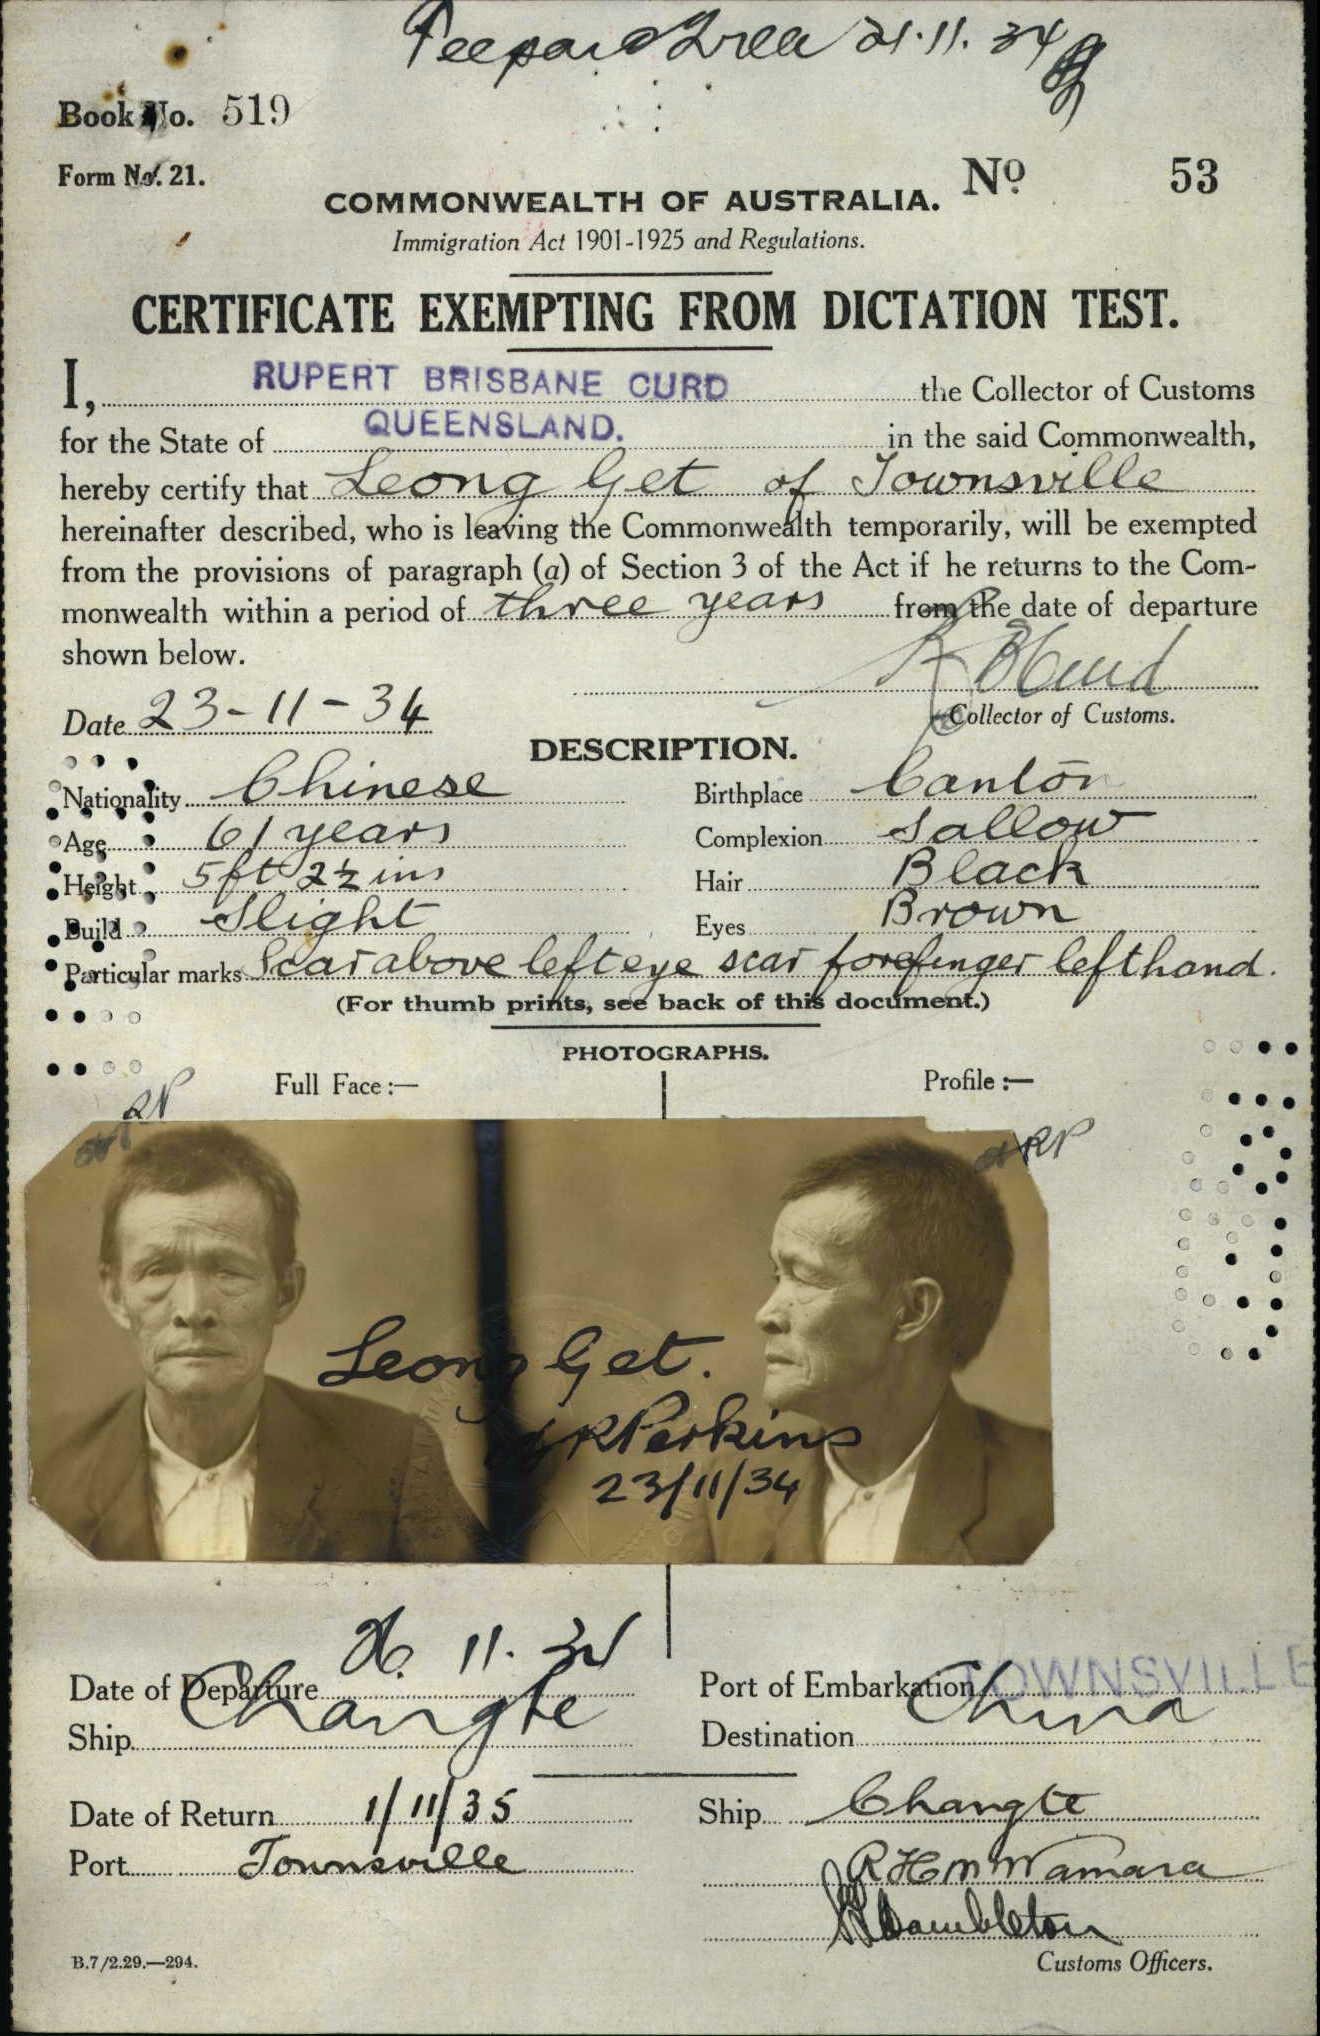 Fee paid 21.11.34
Book No. 519
Form No. 21.
No. 53
COMMONWEALTH OF AUSTRALIA.
Immigration Act 1901-1925 and Regulations.
CERTIFICATE EXEMPTING FROM DICTATION TEST.
I, RUPERT BRISBANE CURD the Collector of Customs
for the State of QUEENSLAND. in the said Commonwealth,
hereby certify that Leong Get of Townsville
hereinafter described, who is leaving the Commonwealth temporarily, will be exempted
from the provisions of paragraph (a) of Section 3 of the Act if he returns to the Com-
monwealth within a period of three years from the date of departure
shown below.
R B Curd
Date 23-11-34
Collector of Customs.
DESCRIPTION.
Nationality Chinese Birthplace Canton
Age 61 years Complexion Sallow
Height 5ft 2½ ins Hair Black
Build Slight Eyes Brown
Particular marks Scar above left eye scar forefinger left hand.
(For thumb prints, see back of this document.)
PHOTOGRAPHS.
Full Face:— Profile:—
Leong Get.
Perkins
23/11/34
Date of Departure 11.34 Port of Embarkation TOWNSVILLE
Ship Changte Destination China
Date of Return 1/11/35 Ship Changte
Port Townsville
R H McNamara
Customs Officers.
B.7/2.29.—294.